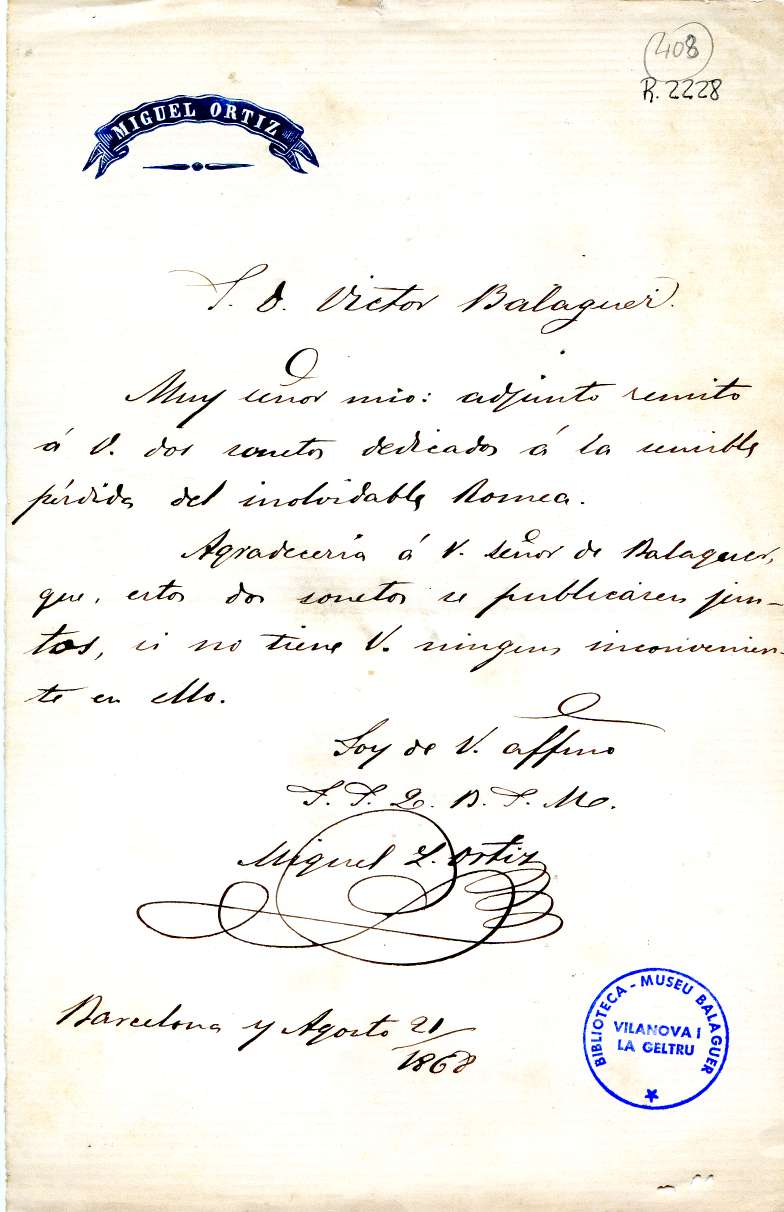 408
R.2228
MIGUEL ORTIZ
S. D. Victor Balaguer.
Muy señor mio: adjunto remito
á V. dos sonetos dedicados á la sensible
pérdida del inolvidable Romea.
Agradeceria á V. señor de Balaguer,
que, estos dos sonetos se publicásen jun-
tos, si no tiene V. ningun inconvenien-
te en ello.
Soy de V. affmo
S. S. Q. B. S. M.
Miguel L. Ortiz
Barcelona y Agosto 21/1868
BIBLIOTECA - MUSEU BALAGUER
VILANOVA I
LA GELTRU